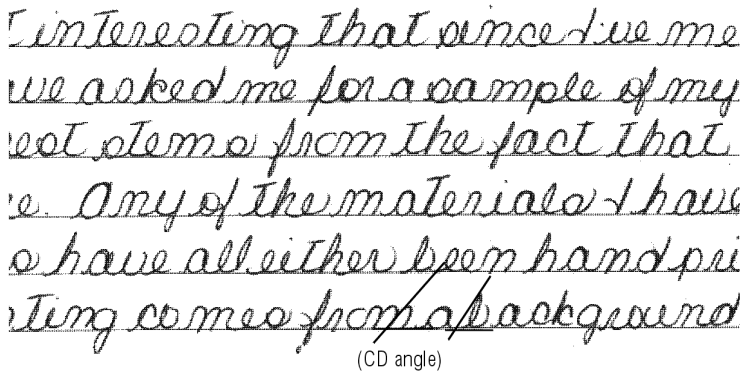 t interesting that since I've me
ave asked me for a sample of my
rest stems from the fact that
e. Any of the materials I have
s have all either been hand pri
nting comes from a background
(CD angle)